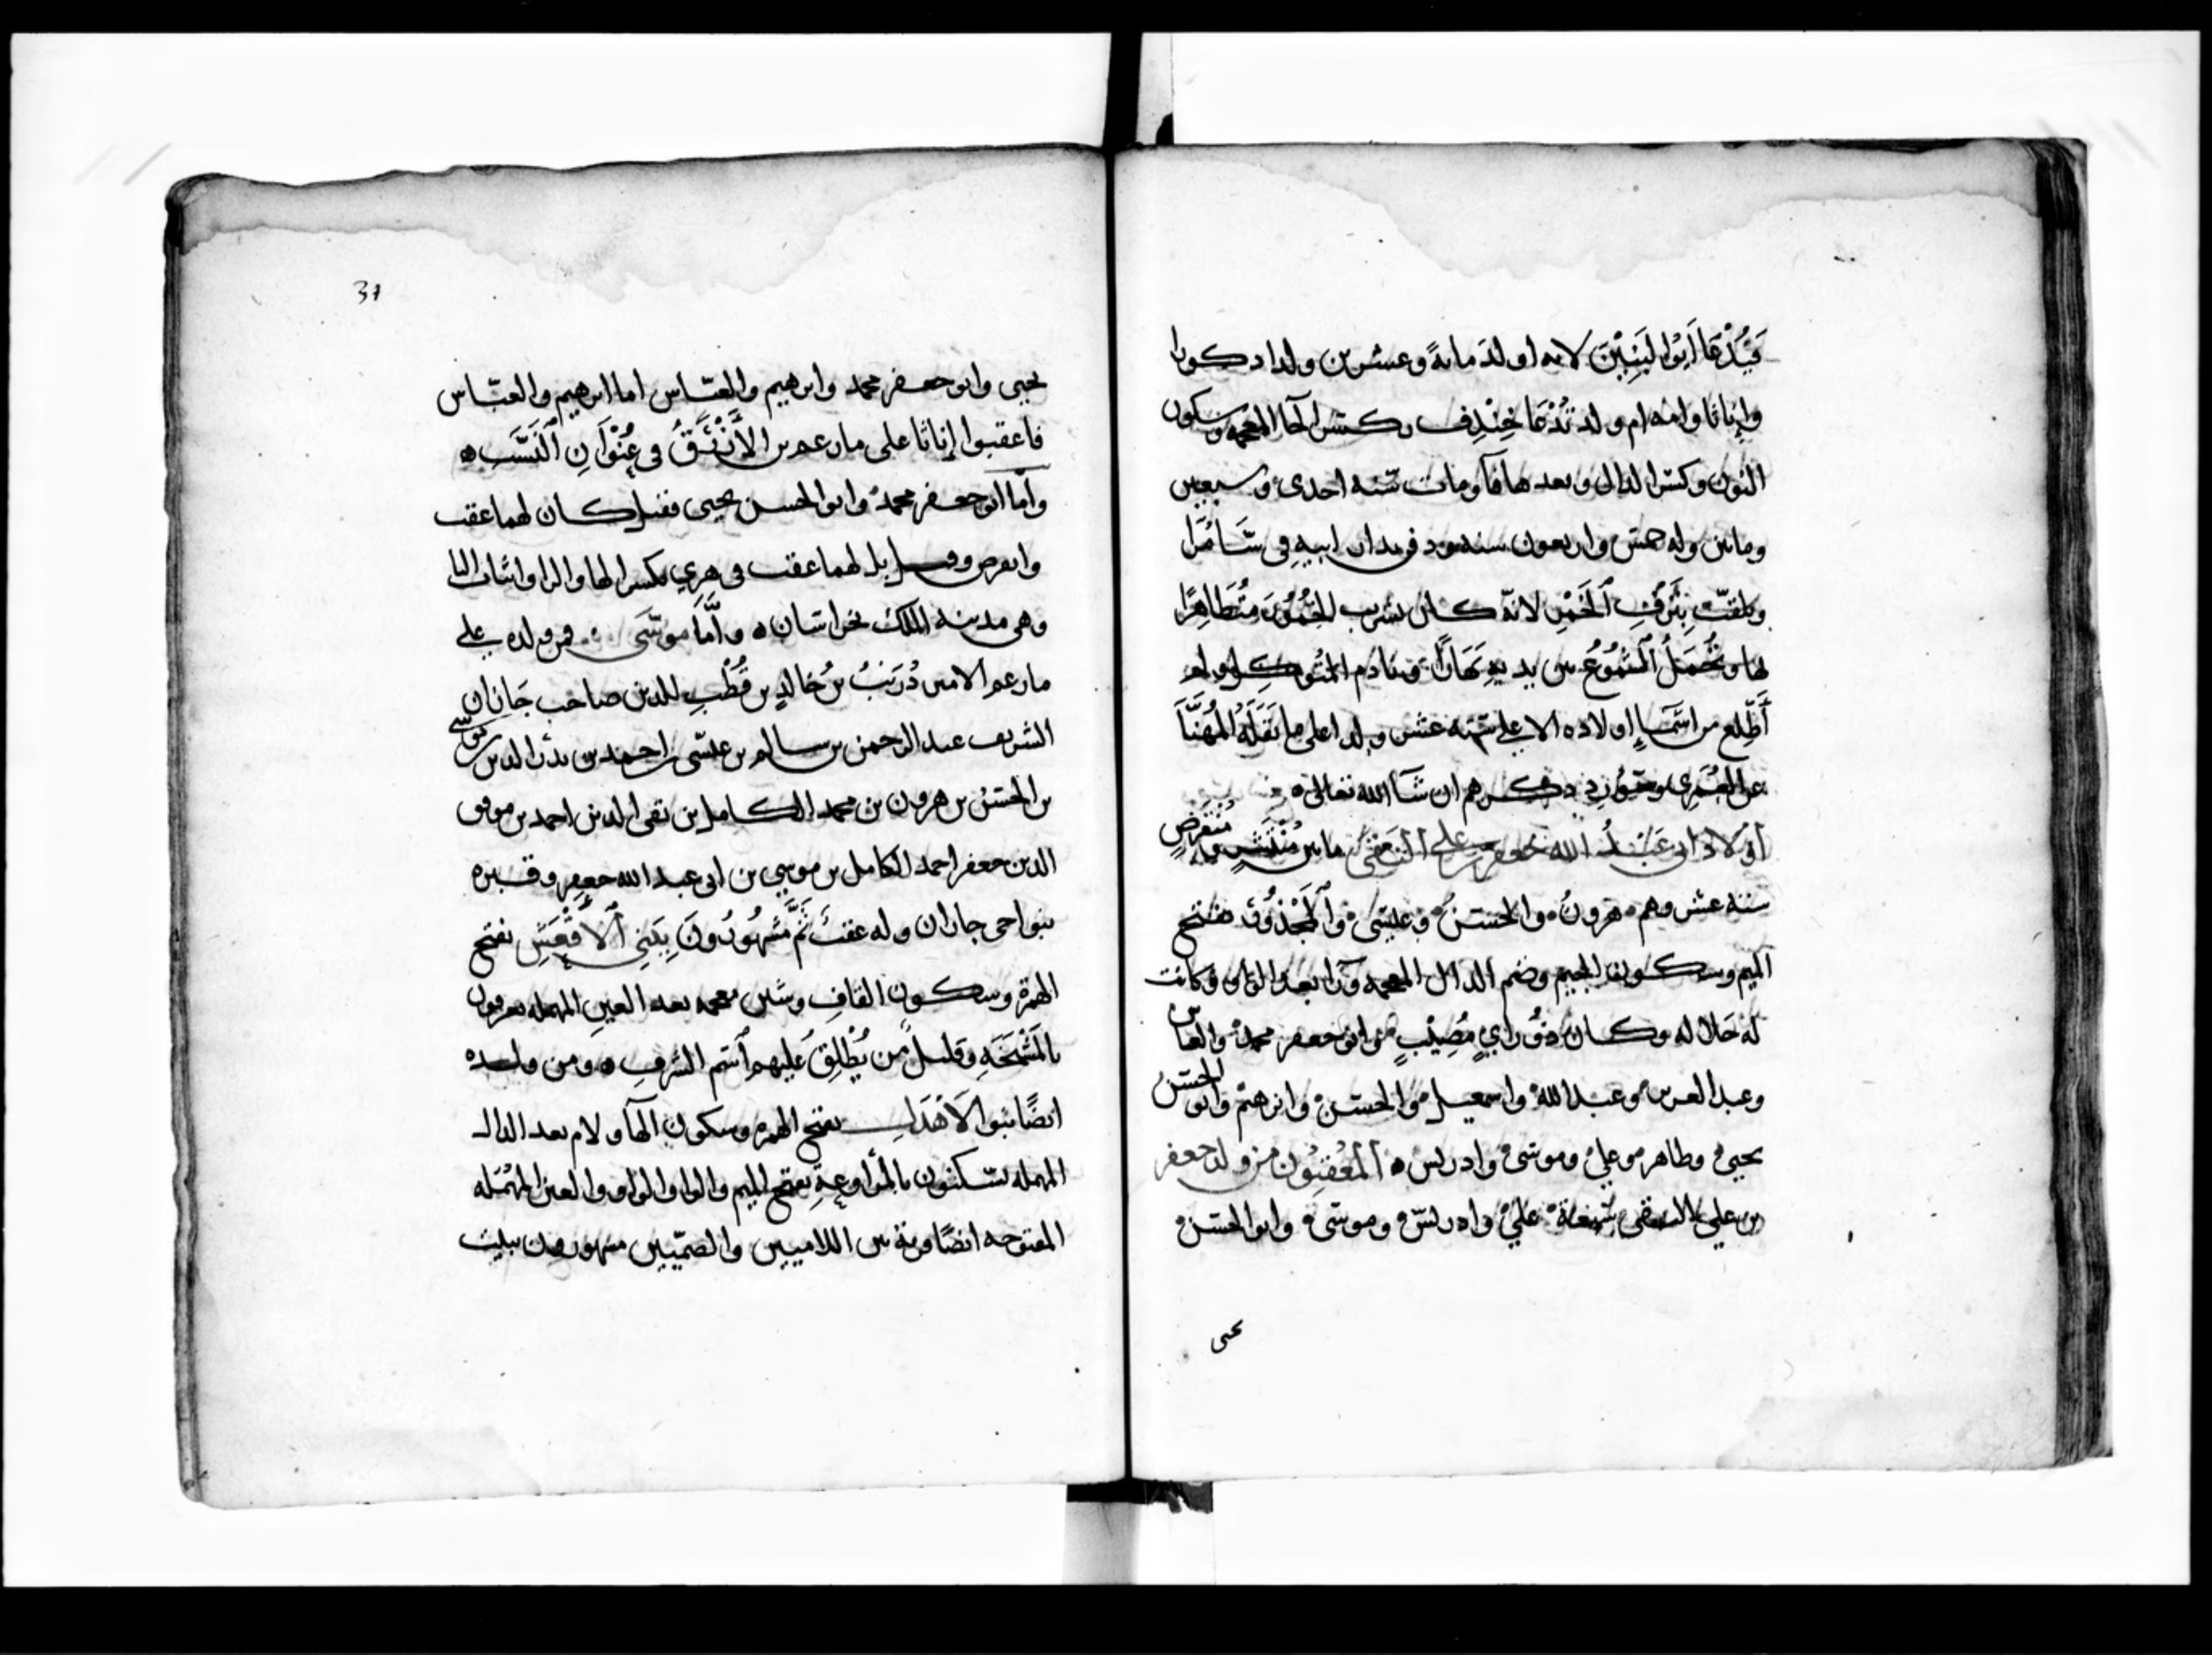 وَيُدْعَا اَبُوا لبَنِيْنَ لانه اولد مايةً وعشرين ولدا دكورا
وإناثا وامه ام ولد تُدْعَا خِنْدِف بكسر الخآ المعجمه وسكون
النون وكسر الدال وبعدها فآ ومات سنه احدى وسبعين
وماتين وله خمس واربعون سنه ودفن في دار ابيهِ في سَامُرَّا
ويلقب بِزِقِّ اَلخَمْرِ لانه كان يشرب الخُمُورَ مُتَظاهِرًا
بها وتُحمَلُ اَلشمُوعُ بين يديهِ نَهَارًا وينادم المتوكل ولم
أَطَّلِع من اسمَآءِ اولاده الا على ستة عشر ولدا على ما نَقَلَهُ المُهَنَّا
عن العُمَرِي وغيره ذكرهم ان شآ الله تعالى
اَوْلادُ ابي عَبْدُ الله جعفر بن علي النقي مابين مُنْتَشِرٍ ومُنْقَرِضٍ
ستة عشر وهم هرون والحسن وعيسى والمَجْذُوْر بفتح
الميم وسكون الجيم وضم الدال المعجمه ورا بعد الواو وكانت
له جَلالة وكان ذوْ رايٍ مُصِيْبٍ وابو جعفر محمد والعباس
وعبد العزيز وعبد الله واسمعيل والحسن وابرهيم وابو الحسن
يحيى وطاهر وعلي وموسى وادريس اَلمُعْقِبُون من ولد جعفر
بن علي النقي سبعة علي وادريس وموسى وابو الحسن
يحيى
37
يحيى وابو جعفر محمد وابرهيم والعباس اما ابرهيم والعباس
فاعقبوا إناثا على ما زعم بن الأَزْرَقُ في عُنْوَانِ اَلنَسَبِ
وامّا ابو جعفر محمد وابو الحسن يحيى فقيل كان لهما عقب
وانقرض وقيل بل لهما عقب في هِرِي بكسر الها والرا واثبات اليا
وهي مدينه الملك بخراسان وَاَمَّا موسى فمن ولده على
ما زعم الامير دُرَيْبُ بن خالدِ بن قُطْبِ الدين صاحب جَازان
الشريف عبد الرحمن بن سالم بن عيسى بن احمد بن بدر الدين موسى
بن الحسن بن هرون بن محمد الكامل بن تقي الدين احمد بن موفق
الدين جعفر احمد الكامل بن موسى بن ابي عبد الله جعفر وقبره
بنواحي جازان وله عقبٌ ثَمَّ مَشْهُوْرُونَ بِبَنِي اَلأقْعَشِ بفتح
الهمزة وسكون القافِ وشين معجمه بعد العين المهمله يعرفون
بالمَشْيَخَهِ وقليل مَن يُطْلِقُ عليهم اسم الشرفِ ومن ولده
ايضًا بنو الأَهْدَلِ بفتح الهمزه وسكون الهآ ولام بعد الدال
المهمله يسكنون بالمَراوعةِ بفتح الميم والرا والواو والعين المُهْمَله
المفتوحه ايضًا وبة بين اللاميين والصميين مشهورون ببيت